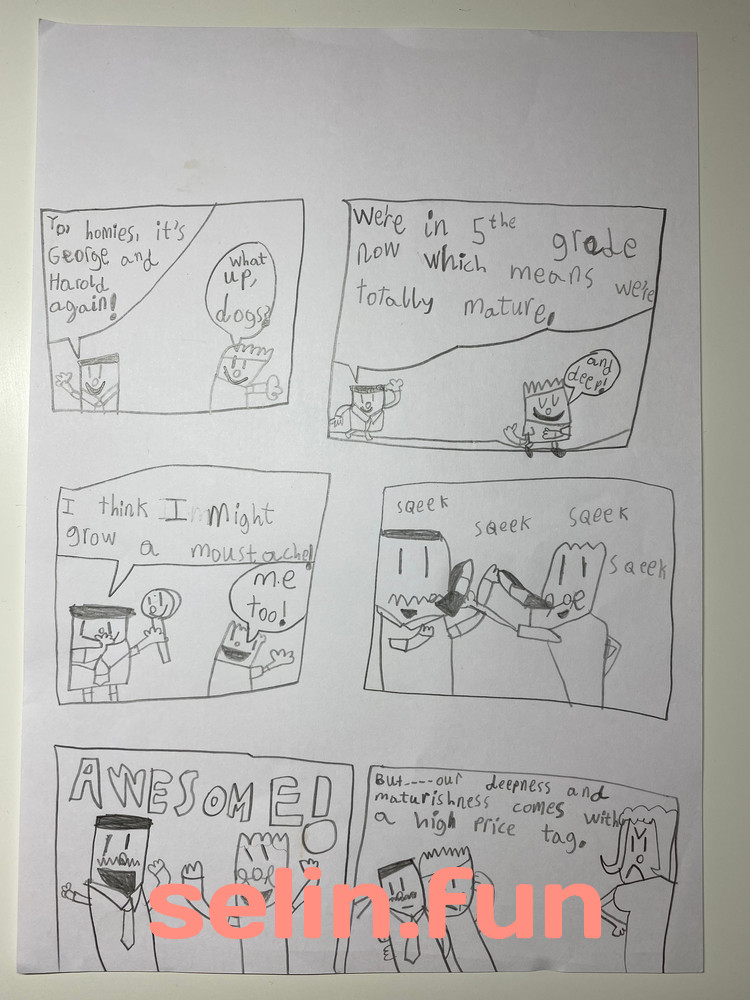 Yo, homies, it's
George and
Harold
again!
what
up,
dogs?
We're in 5the grade
now which means we're
totally mature.
and
deep!
I think I might
grow a moustache!
me
too!
sqeek
sqeek
sqeek
sqeek
AWESOME!
But----our deepness and
maturishness comes with
a high price tag.
selin.fun